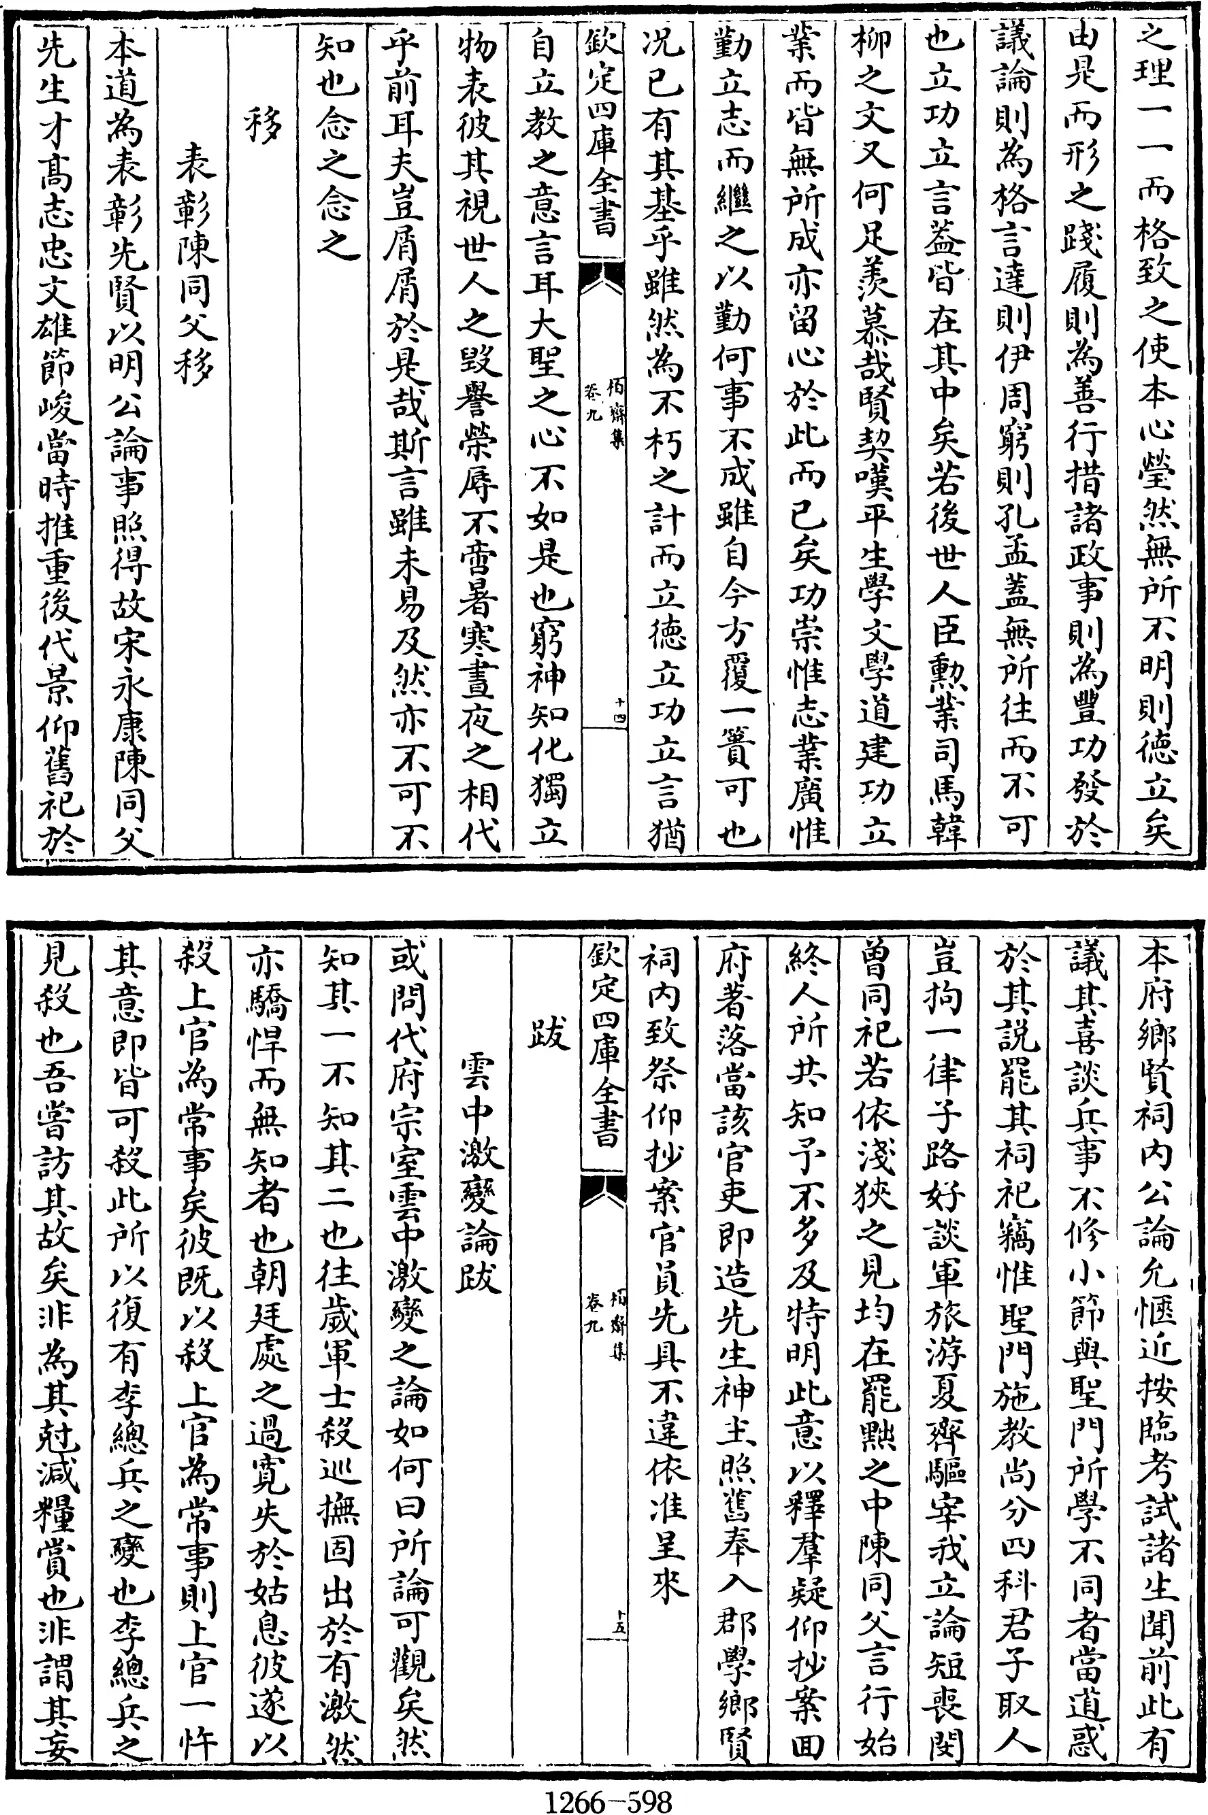 之理一一而格致之使本心瑩然無所不明則徳立矣
由是而形之踐履則為善行措諸政事則為豐功發於
議論則為格言達則伊周窮則孔孟蓋無所往而不可
也立功立言蓋皆在其中矣若後世人臣勲業司馬韓
柳之文又何足羨慕哉賢契嘆平生學文學道建功立
業而皆無所成亦留心於此而已矣功崇惟志業廣惟
勤立志而繼之以勤何事不成雖自今方覆一簣可也
况已有其基乎雖然為不朽之計而立徳立功立言猶
欽定四庫全書
栢齋集
卷九
十四
自立教之意言耳大聖之心不如是也窮神知化獨立
物表彼其視世人之毀譽榮辱不啻暑寒晝夜之相代
乎前耳夫豈屑屑於是哉斯言雖未易及然亦不可不
知也念之念之
移
表彰陳同父移
本道為表彰先賢以明公論事照得故宋永康陳同父
先生才髙志忠文雄節峻當時推重後代景仰舊祀於
本府鄉賢祠内公論允愜近按臨考試諸生聞前此有
議其喜談兵事不修小節與聖門所學不同者當道惑
於其説罷其祠祀竊惟聖門施教尚分四科君子取人
豈拘一律子路好談軍旅游夏齊驅宰我立論短喪閔
曽同祀若依淺狹之見均在罷黜之中陳同父言行始
終人所共知予不多及特明此意以釋羣疑仰抄案回
府著落當該官吏即造先生神主照舊奉入郡學鄉賢
祠内致祭仰抄案官員先具不違依准呈來
欽定四庫全書
栢齋集
卷九
十五
跋
雲中激變論跋
或問代府宗室雲中激變之論如何曰所論可觀矣然
知其一不知其二也往歲軍士殺巡撫固出於有激然
亦驕悍而無知者也朝廷處之過寛失於姑息彼遂以
殺上官為常事矣彼既以殺上官為常事則上官一忤
其意即皆可殺此所以復有李總兵之變也李總兵之
見殺也吾嘗訪其故矣非為其尅減糧賞也非謂其妄
1266-598